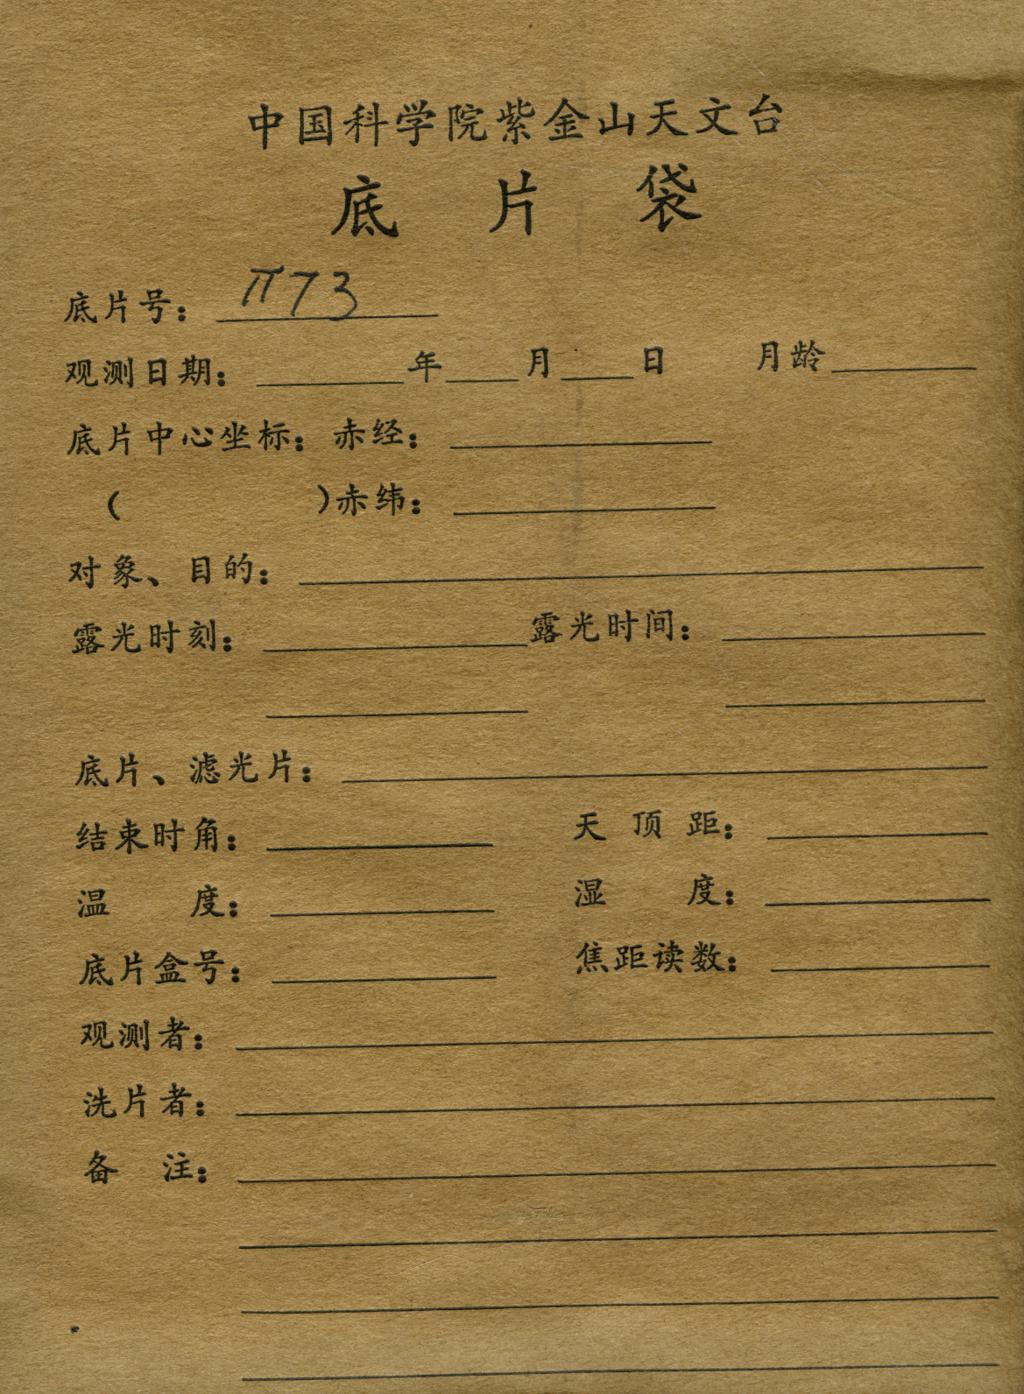 中国科学院紫金山天文台
底片袋
底片号： π73
观测日期： 年 月 日 月龄
底片中心坐标：赤经：
（ ）赤纬：
对象、目的：
露光时刻： 露光时间：
底片、滤光片：
结束时角： 天顶距：
温度： 湿度：
底片盒号： 焦距读数：
观测者：
洗片者：
备注：